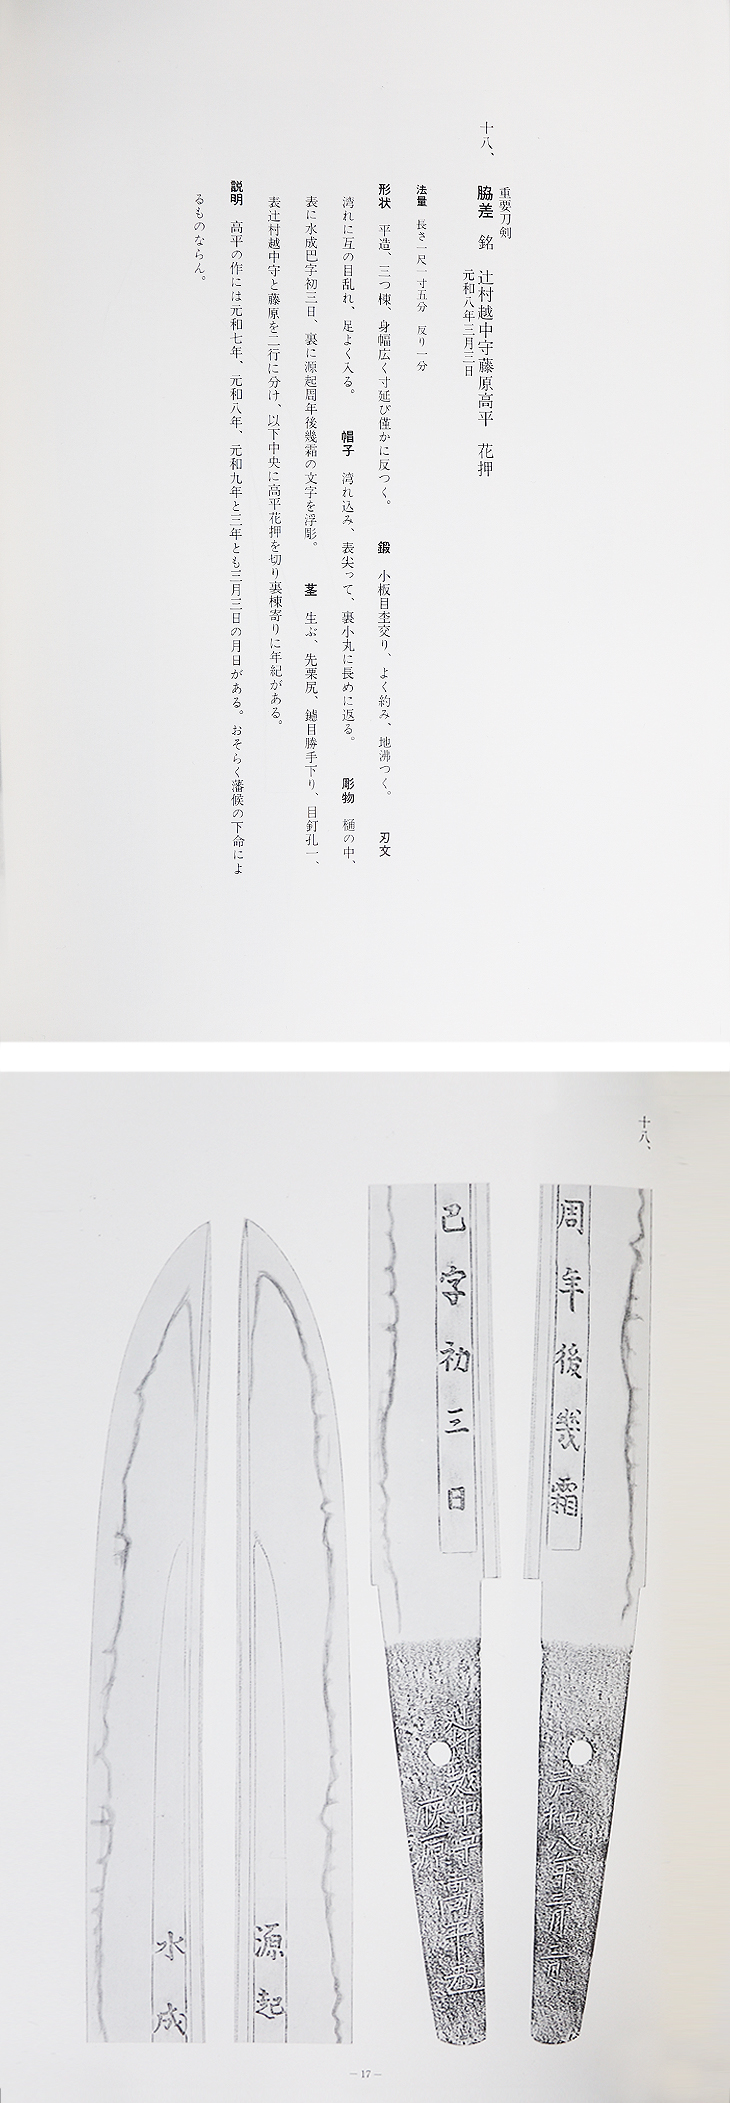 十八、
重要刀剣
脇差 銘 辻村越中守藤原高平 花押
元和八年三月三日
法量 長さ一尺一寸五分 反り一分
形状 平造、三つ棟、身幅広く寸延び僅かに反つく。 鍛 小板目杢交り、よく約み、地沸つく。 刃文
湾れに互の目乱れ、足よく入る。 帽子 湾れ込み、表尖って、裏小丸に長めに返る。 彫物 樋の中、
表に水成巴字初三日、裏に源起周年後幾霜の文字を浮彫。 茎 生ぶ、先栗尻、鑢目勝手下り、目釘孔一、
表辻村越中守と藤原を二行に分け、以下中央に高平花押を切り裏棟寄りに年紀がある。
説明 高平の作には元和七年、元和八年、元和九年と三年とも三月三日の月日がある。おそらく藩候の下命によ
るものならん。
十八、
周年後幾霜
巴字初三日
源起
水成
元和八年三月三日
辻村越中守高平
藤原
－17－